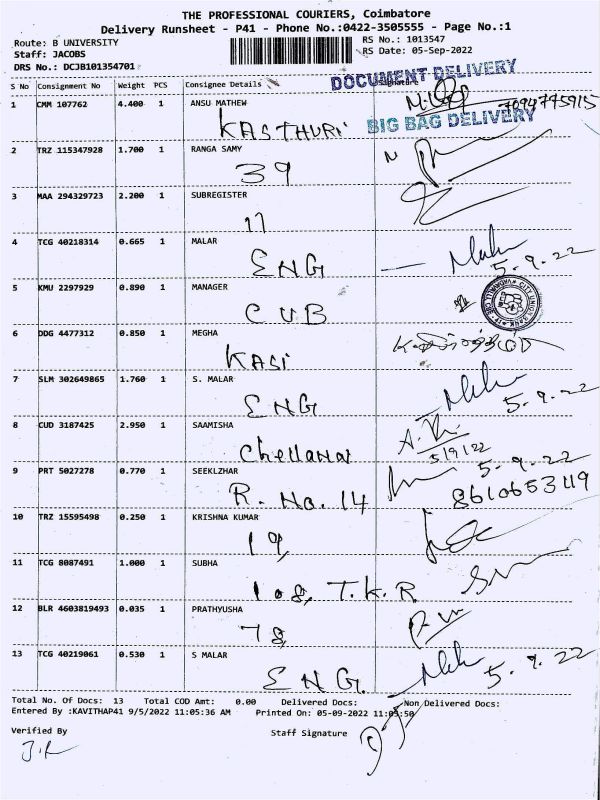 THE PROFESSIONAL COURIERS, Coimbatore
Delivery Runsheet - P41 - Phone No.:0422-3505555 - Page No.:1
Route: B UNIVERSITY RS No.: 1013547
Staff: JACOBS RS Date: 05-Sep-2022
DRS No.: DCJB101354701
DOCUMENT DELIVERY
S No Consignment No Weight PCS Consignee Details Signature
1 CMM 107762 4.400 1 ANSU MATHEW
KASTHURI 7094775915
BIG BAG DELIVERY
2 TRZ 115347928 1.700 1 RANGA SAMY
39
3 MAA 294329723 2.200 1 SUBREGISTER
17
4 TCG 40218314 0.665 1 MALAR
ENG 5-9-22
5 KMU 2297929 0.890 1 MANAGER
CUB
6 DDG 4477312 0.850 1 MEGHA
KASI
7 SLM 302649865 1.760 1 S. MALAR
ENG 5-9-22
8 CUD 3187425 2.950 1 SAAMISHA
Chellamar 5/9/22
9 PRT 5027278 0.770 1 SEEKLZHAR 5-9-22
R. No. 14 8610653119
10 TRZ 15595498 0.250 1 KRISHNA KUMAR
19,
11 TCG 8087491 1.000 1 SUBHA
108, T.K.R
12 BLR 4603819493 0.035 1 PRATHYUSHA
78,
13 TCG 40219061 0.530 1 S MALAR
ENG. 5-9-22
Total No. Of Docs: 13 Total COD Amt: 0.00 Delivered Docs: Non Delivered Docs:
Entered By :KAVITHAP41 9/5/2022 11:05:36 AM Printed On: 05-09-2022 11:05:50
Verified By Staff Signature
J.R